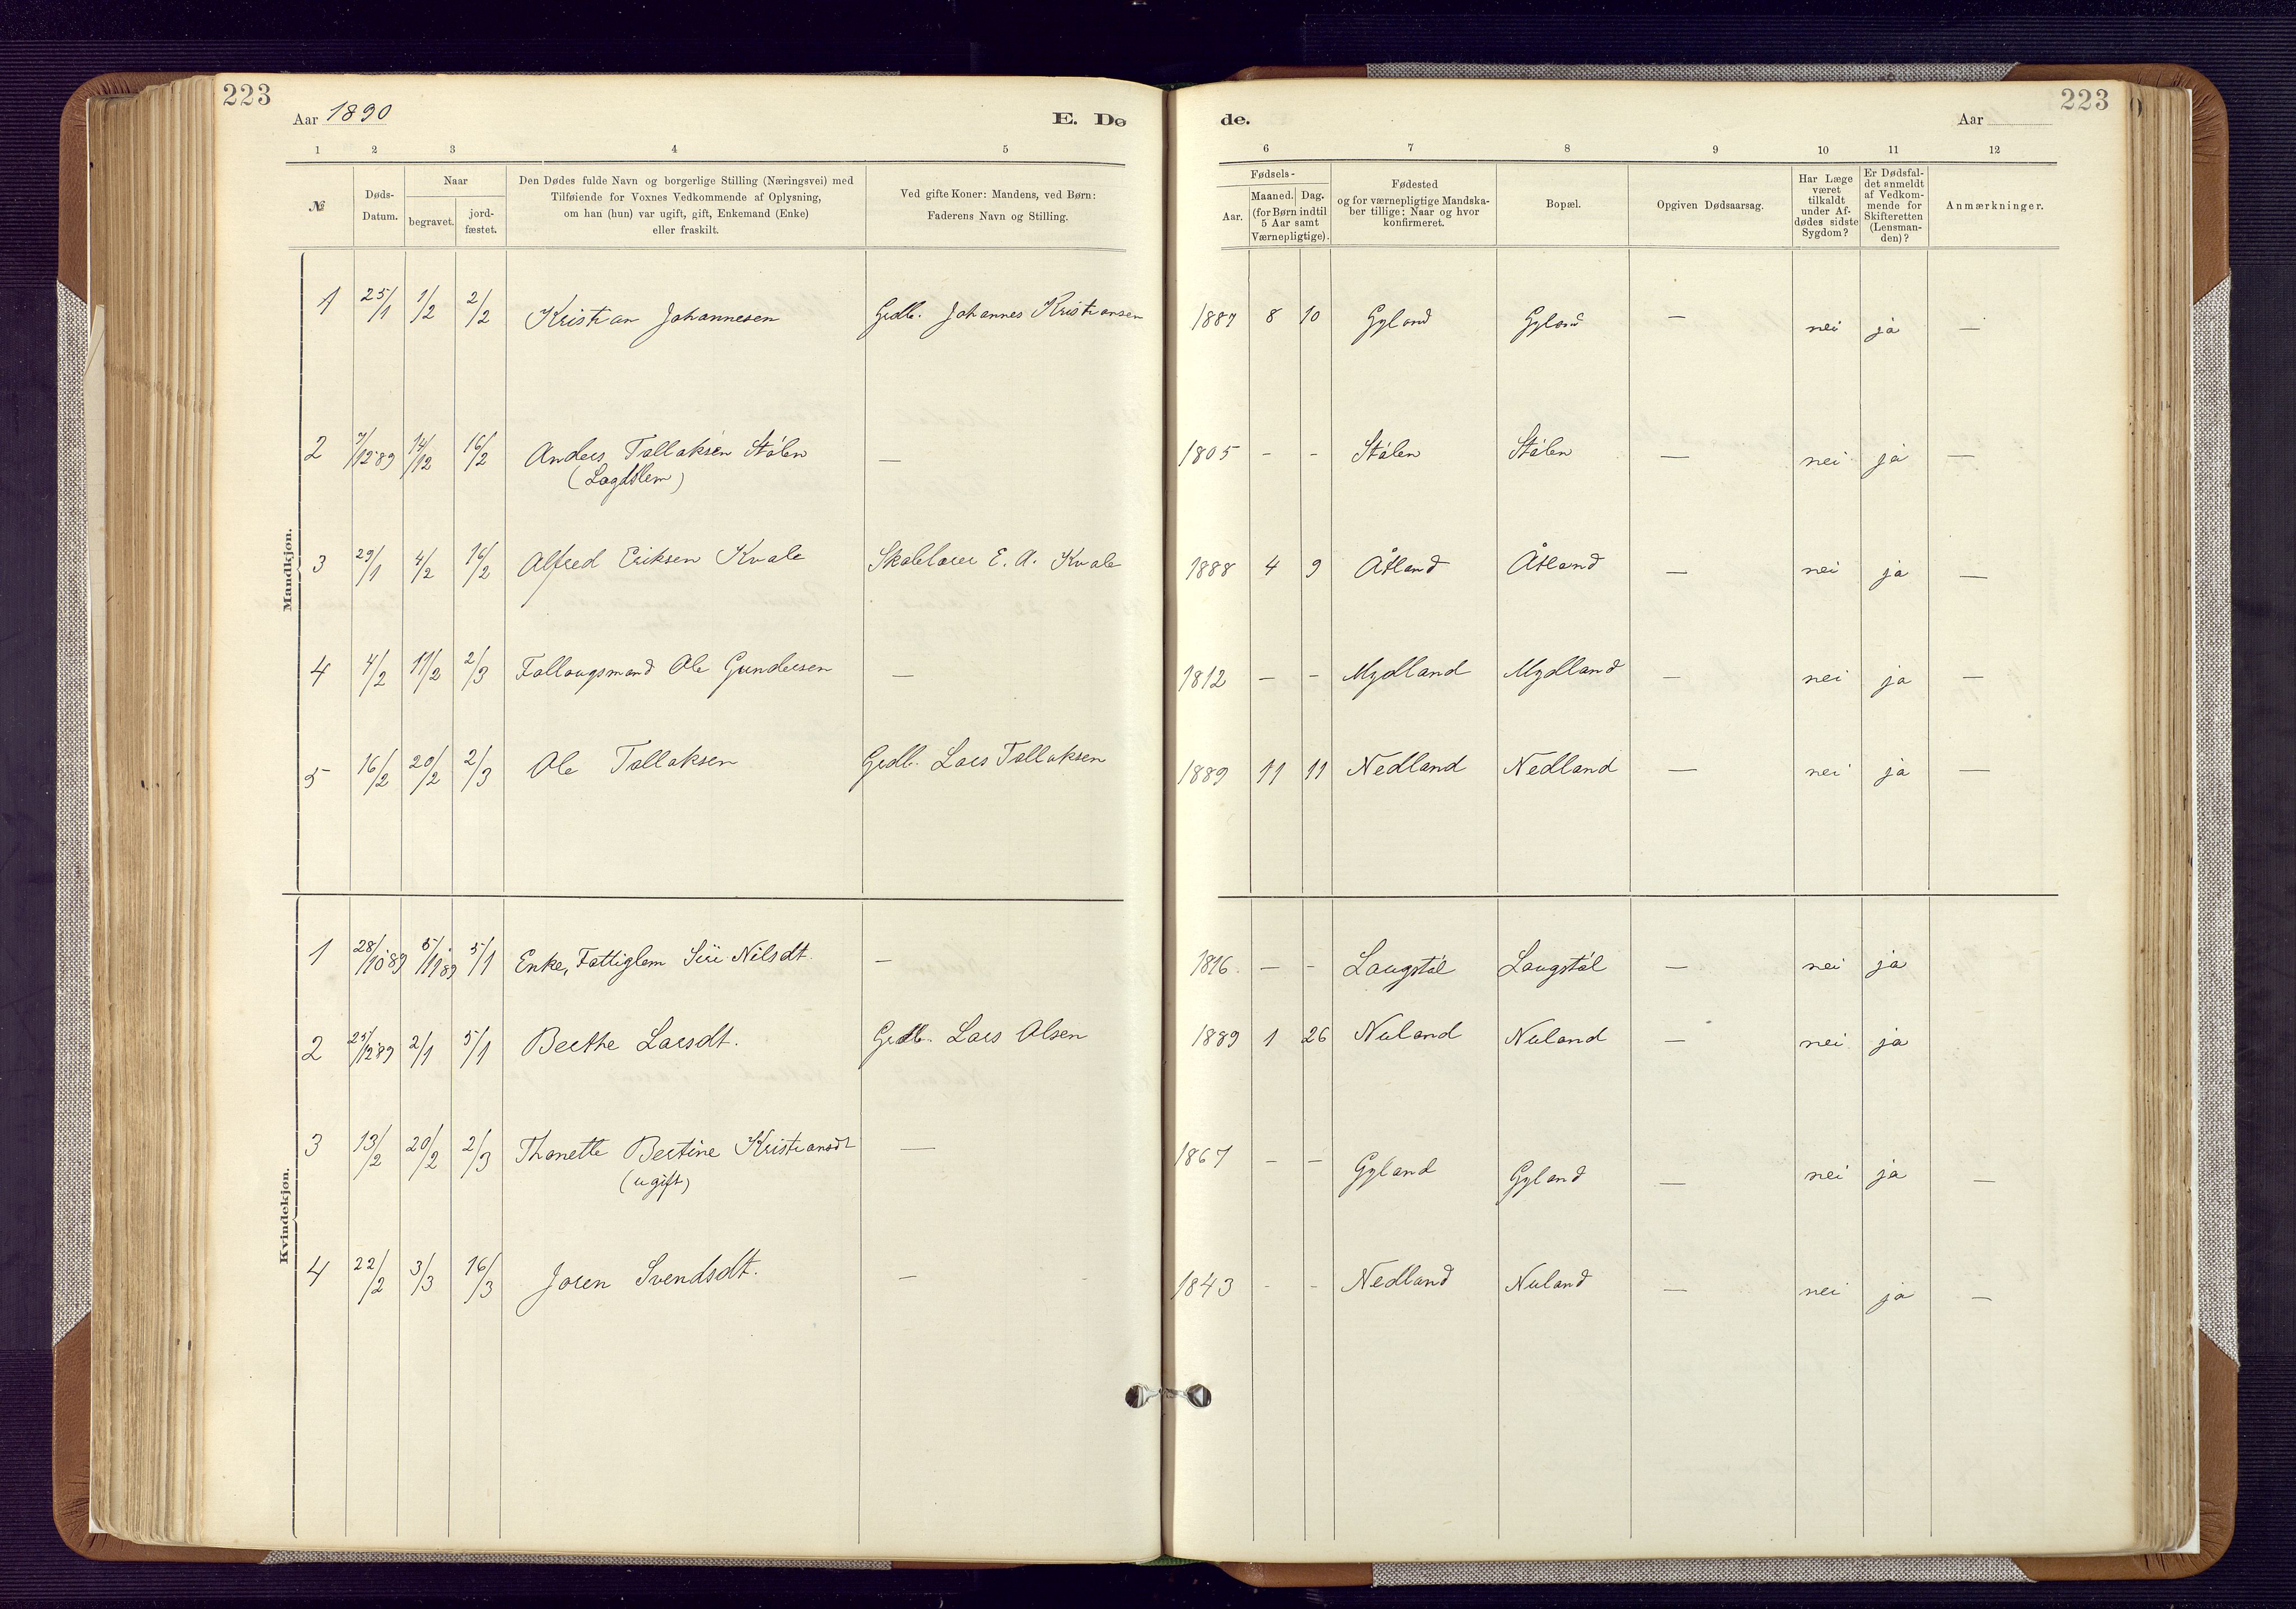 223
Aar 1890
E. Dø
de.
Aar
223
1 2 3 4 5
6 7 8 9 10 11 12
№
Døds-
Datum.
Naar
begravet.
jord-
fæstet.
Den Dødes fulde Navn og borgerlige Stilling (Næringsvei) med
Tilføiende for Voxnes Vedkommende af Oplysning,
om han (hun) var ugift, gift, Enkemand (Enke)
eller fraskilt.
Ved gifte Koner: Mandens, ved Børn:
Faderens Navn og Stilling.
Fødsels-
Aar.
Maaned.
Dag.
(for Børn indtil
5 Aar samt
Værnepligtige).
Fødested
og for værnepligtige Mandska-
ber tillige: Naar og hvor
konfirmeret.
Bopæl.
Opgiven Dødsaarsag.
Har Læge
været
tilkaldt
under Af-
dødes sidste
Sygdom?
Er Dødsfal-
det anmeldt
af Vedkom-
mende for
Skifteretten
(Lensman-
den)?
Anmærkninger.
Mandkjøn.
1 25/1 1/2 2/2 Kristian Johannesen Grdb. Johannes Kristiansen 1887 8 10 Gyland Gyland — nei ja —
2 7/12 89 14/12 16/2 Anders Tallaksen Stålen — 1805 - - Stålen Stålen — nei ja —
(Lægdslem)
3 29/1 4/2 16/2 Alfred Eriksen Kvale Skolelærer E. A. Kvale 1888 4 9 Åtland Åtland — nei ja —
4 4/2 11/2 2/3 Ole Gundersen — 1812 - - Mydland Mydland — nei ja —
5 16/2 20/2 2/3 Ole Tallaksen Grdb. Lars Tallaksen 1889 11 11 Nedland Nedland — nei ja —
Kvindekjøn.
1 28/10 89 5/11 89 5/1 Enke, Fattiglem Siri Nilsdt. — 1816 — - Laugstøl Laugstøl — nei ja
2 25/12 89 2/1 5/1 Berthe Larsdt. Grdb. Lars Olsen 1889 1 26 Nuland Nuland — nei ja
3 13/2 20/2 2/3 Thonette Bertine Kristiansdt — 1867 - - Gyland Gyland — nei ja —
(ugift)
4 22/2 3/3 16/3 Joren Svendsdt. — 1843 - - Nedland Nuland — nei ja —